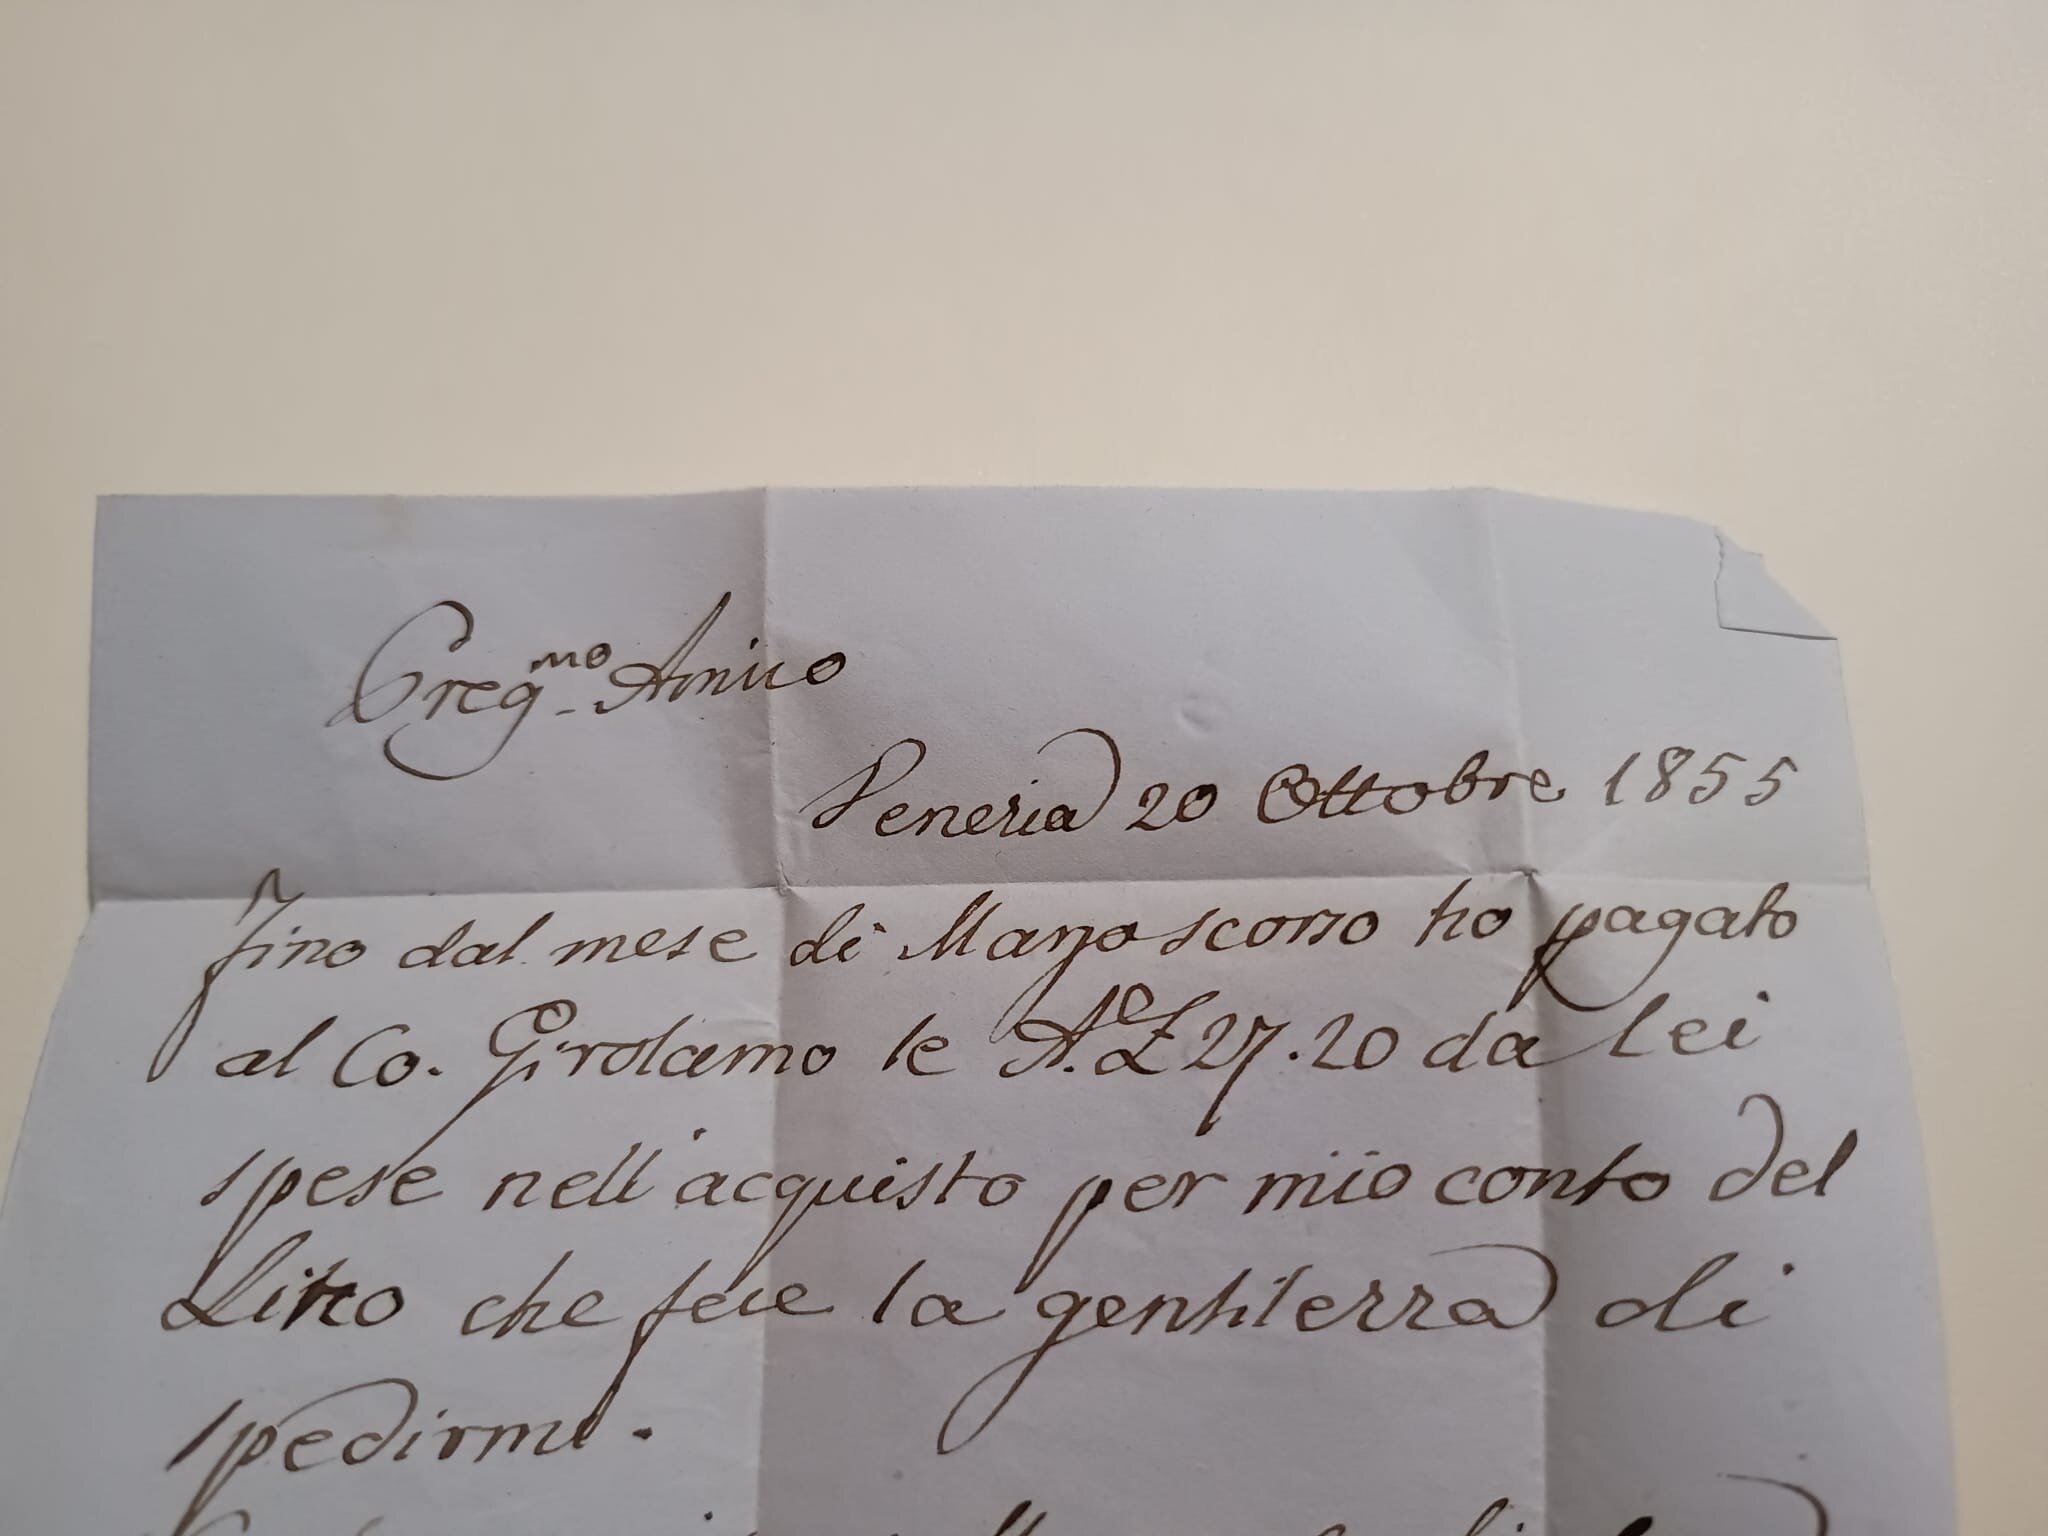 Preg.mo Amico
Venezia 20 Ottobre 1855
Fino dal mese di Marzo scorso ho pagato
al Co. Girolamo le A.e£ 27.20 da lei
spese nell'acquisto per mio conto del
che fece la gentilezza di
spedirmi.